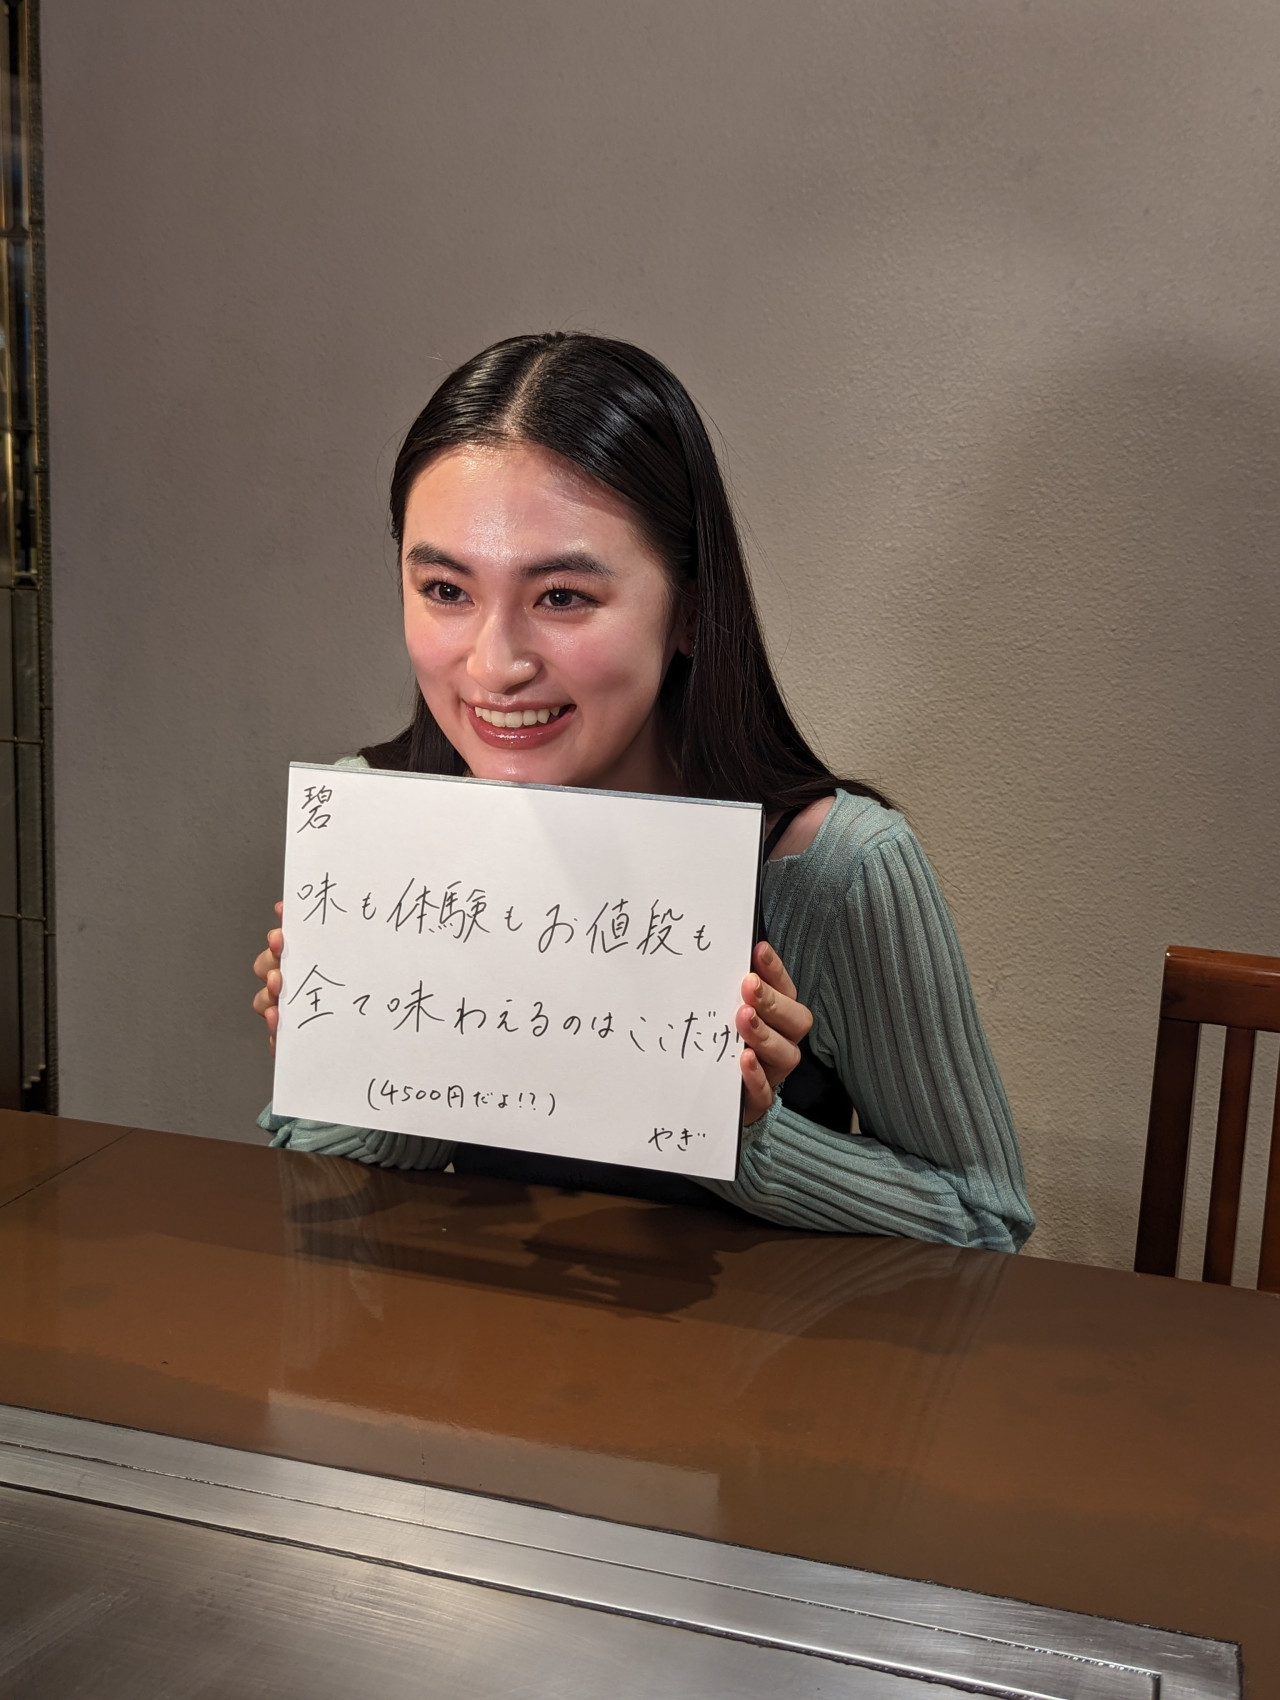 碧
味も体験もお値段も
全て味わえるのはここだけ!!
(4500円だよ!?)
やぎ